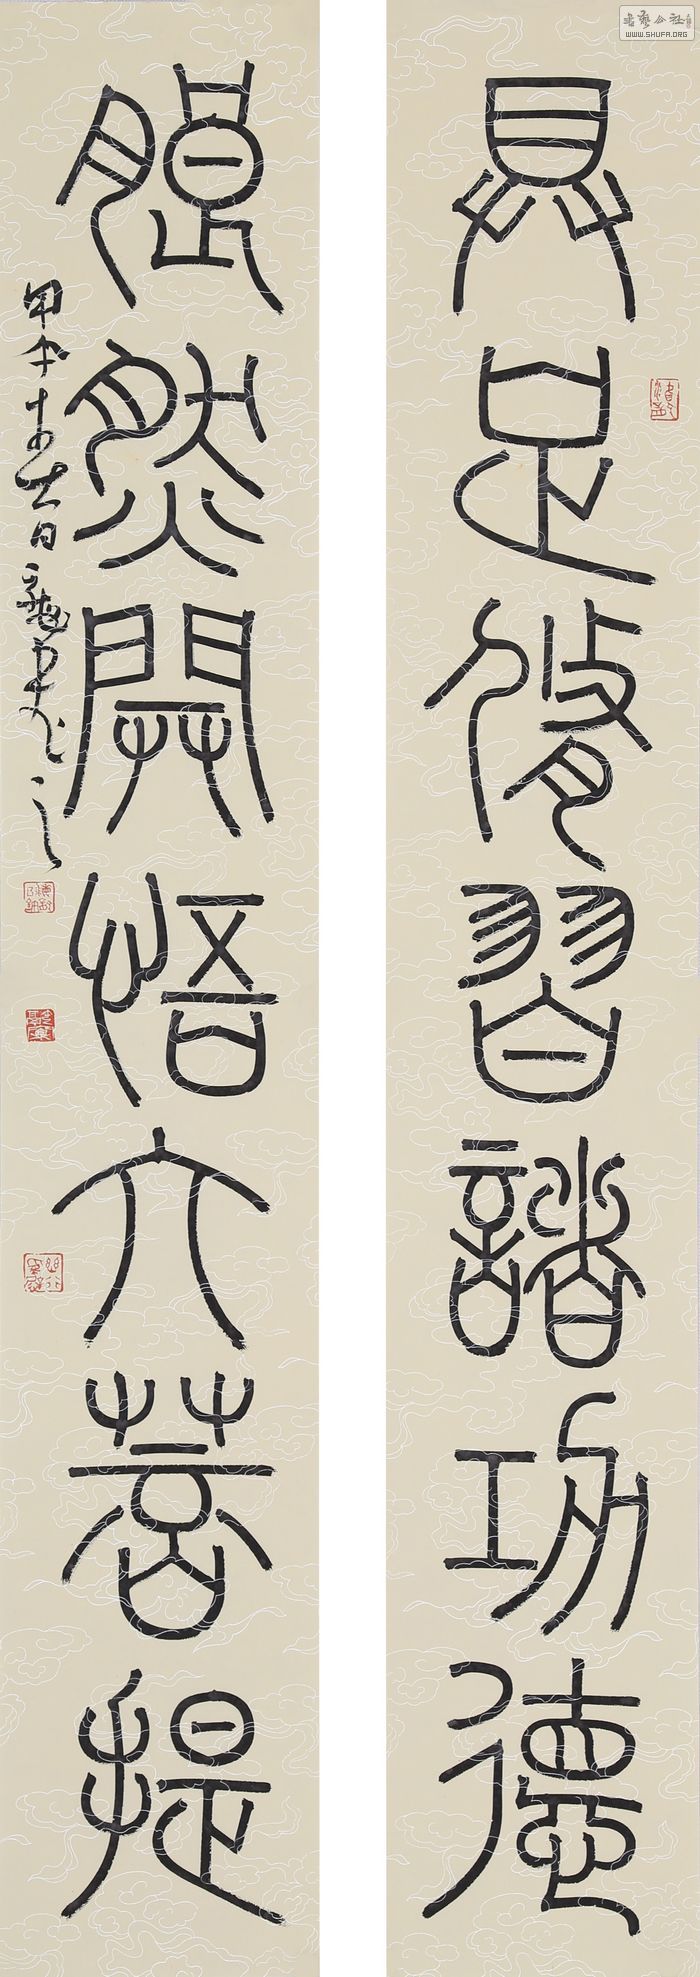 具足修習諸功德
然開悟大菩提
甲午
书艺公社
WWW.SHUFA.ORG